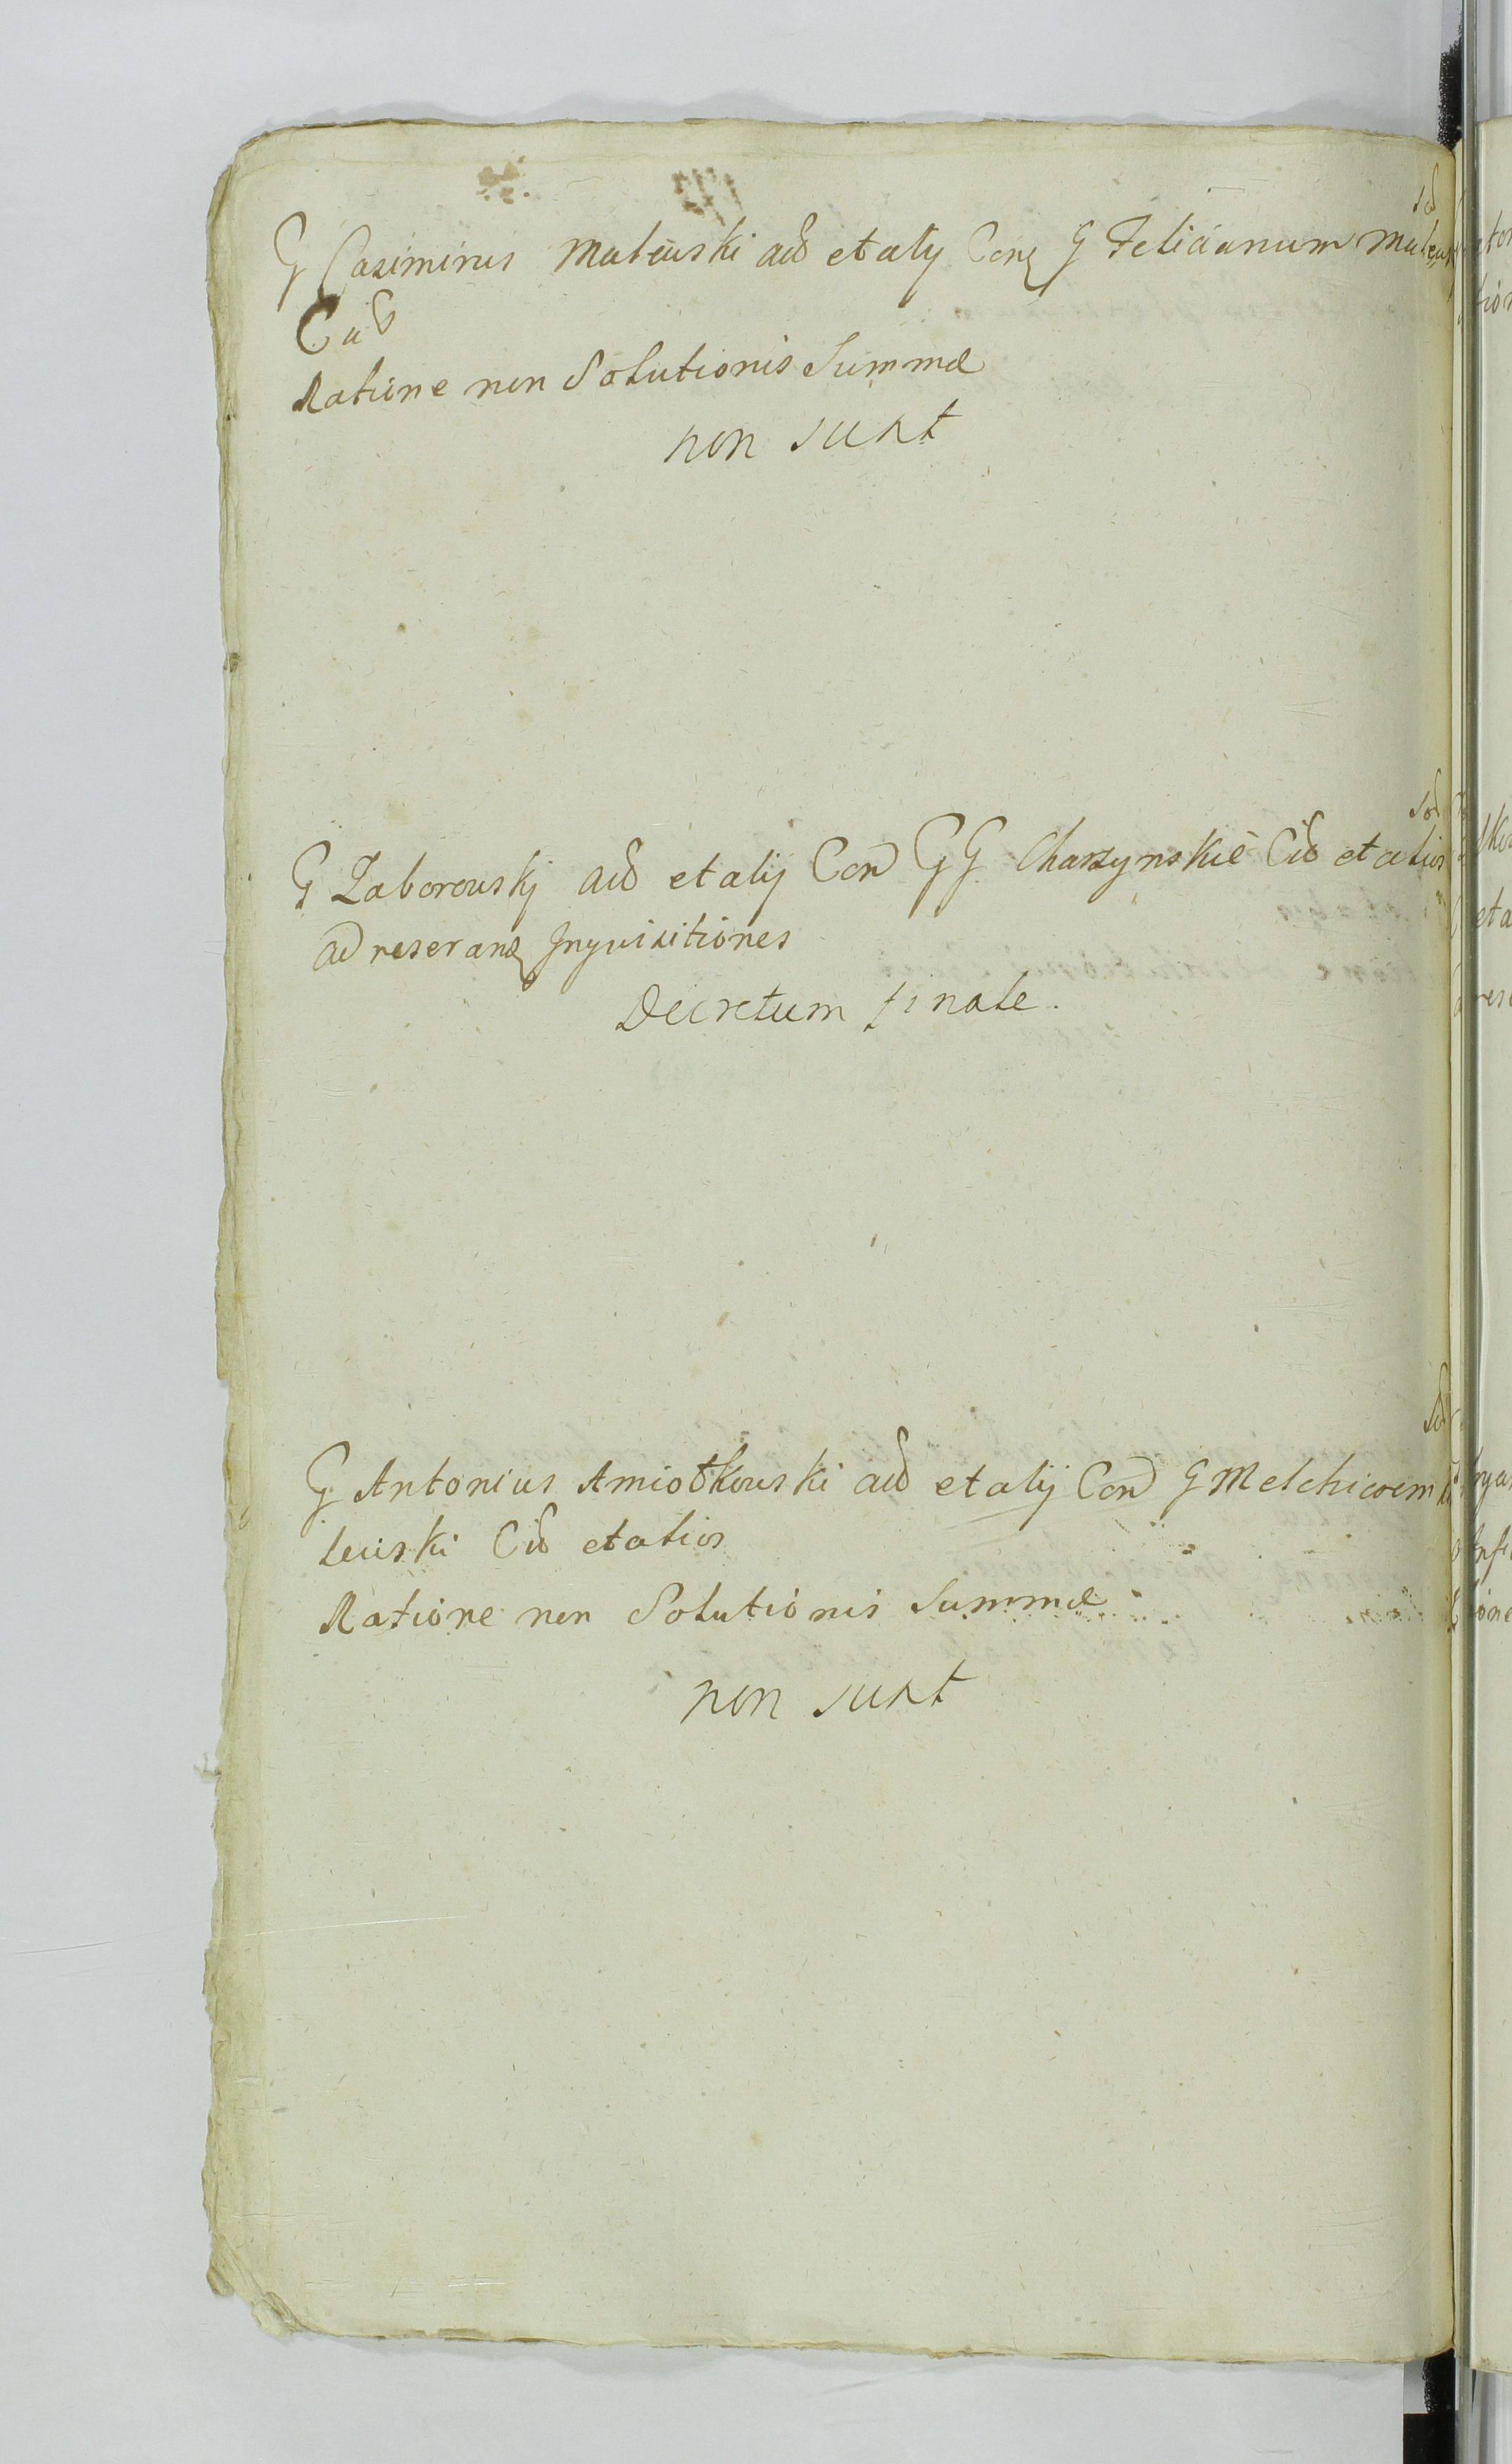 G Casimirus Maleuski aĩb et alij Conq G Felicianum Maleus
Cub
Ratione non Solutionis Summæ
non sunt
Sd
G Zaborouskj aĩb et alij Con GG Charzynskie Cib et alios
ad reseranq Inquisitiones
Decretum finale.
Sd
G Antonius Amiotkouski aĩb et alij Con G Melchiorem
leuski Cib et alios
Ratione non Solutionis Summæ
non sunt